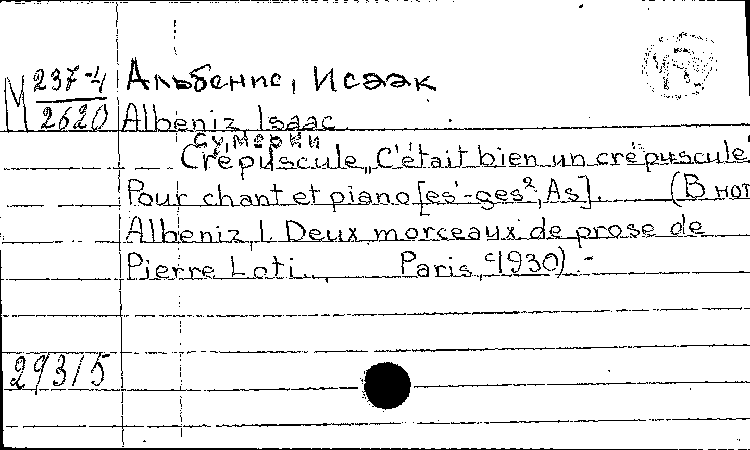 М 237-4 Альбенис, Исаак
2620 Albéniz Isaac
сумерки
Crépuscule „C'était bien un crépuscule
Pour chant et piano [es¹-ges², As]. (В нот
Albeniz, I. Deux morceaux de prose de
Pierre Loti.., Paris, с1930) .-
29315